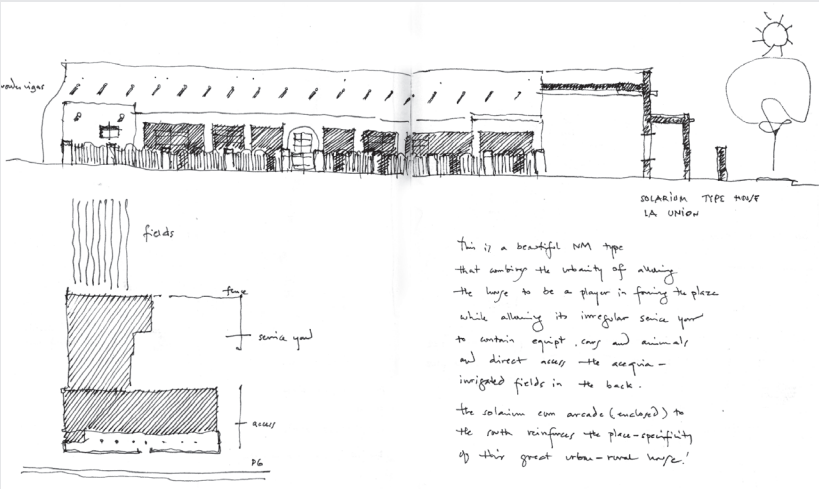 vigas
SOLARIUM TYPE HOUSE
LA UNION
fields
fence
service yard
access
PG
This is a beautiful NM type
that combines the urbanity of allowing
the house to be a player in forming the plaza
while allowing its irregular service yard
to contain equipt, cars and animals
and direct access the acequia-
irrigated fields in the back.
the solarium cum arcade (enclosed) to
the south reinforces the place-specificity
of this great urban-rural house!